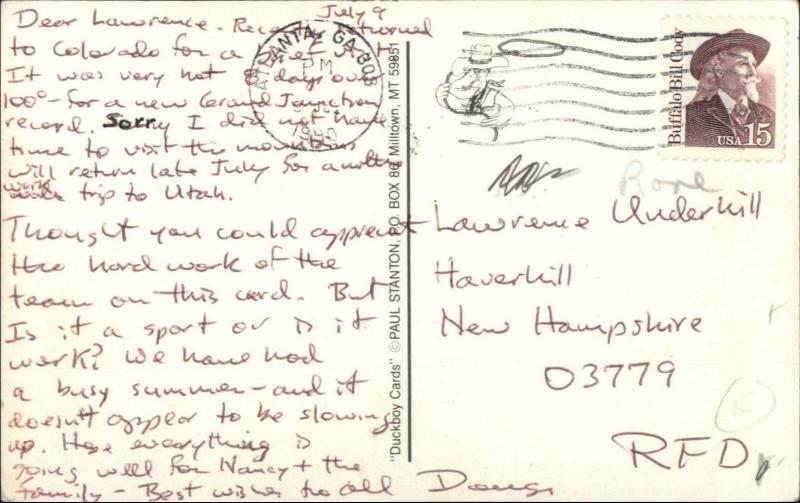 July 9
Dear Lawrence. Recently returned
to Colorado for a
It was very hot 8 days over
100°- for a new Grand Junction
record. Sorry I did not have
time to visit the mountains
will return late July for another
work trip to Utah.
Thought you could appreciate
the hard work of the
team on this card. But
Is it a sport or is it
work? We have had
a busy summer - and it
doesn't appear to be slowing
up. Hope everything is
going well for Nancy + the
family - Best wishes to all Doug.
ATLANTA, GA 303
PM
"Duckboy Cards" © PAUL STANTON, P.O. BOX 86, Milltown, MT 59851
Buffalo Bill Cody
USA 15
Lawrence Underhill
Haverhill
New Hampshire
03779
RFD
15